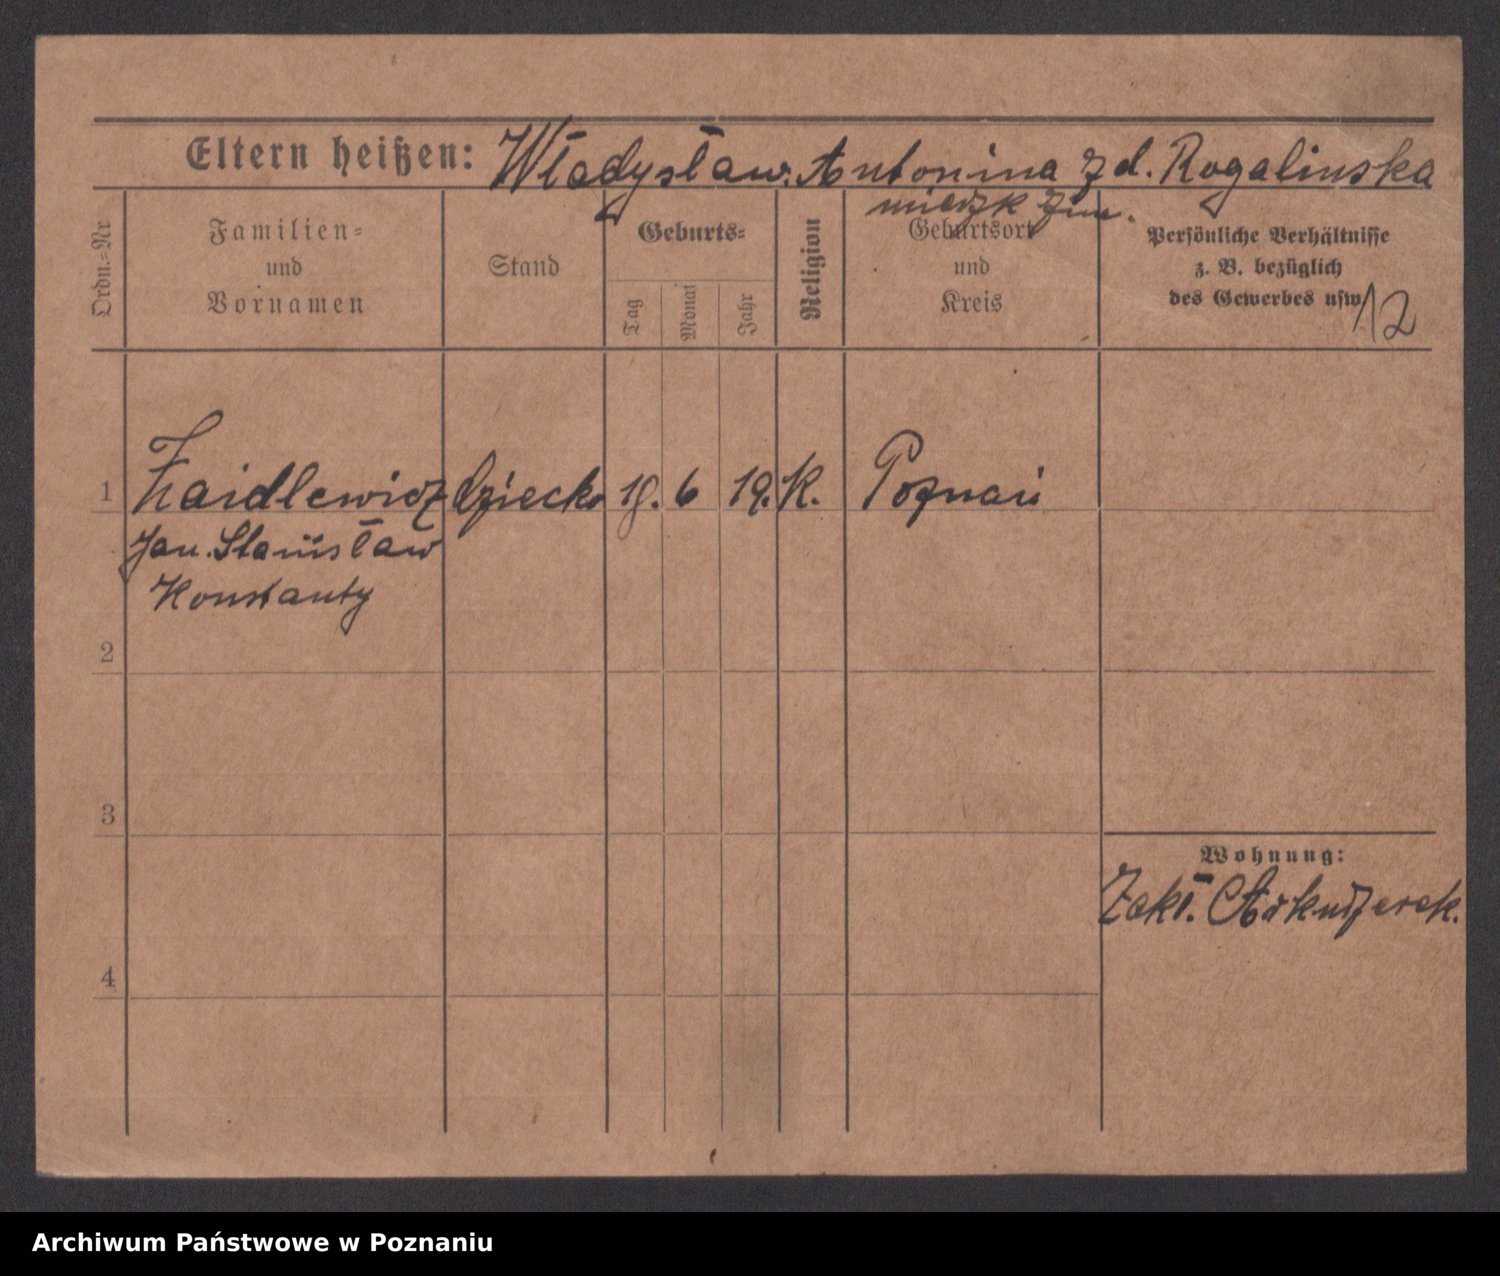 Eltern heißen: Władysław. Antonina z d. Rogalinska
mieszk Zim.
Ordn.-Nr
Familien-
und
Vornamen
Stand
Geburts-
Tag
Monat
Jahr
Religion
Geburtsort
und
Kreis
Persönliche Verhältnisse
z. B. bezüglich
des Gewerbes usw.
12
1 Zaidlewicz dziecko 18. 6 19. K. Poznań
Jan. Stanisław
Konstanty
2
3
Wohnung:
Zakł.
4
Archiwum Państwowe w Poznaniu